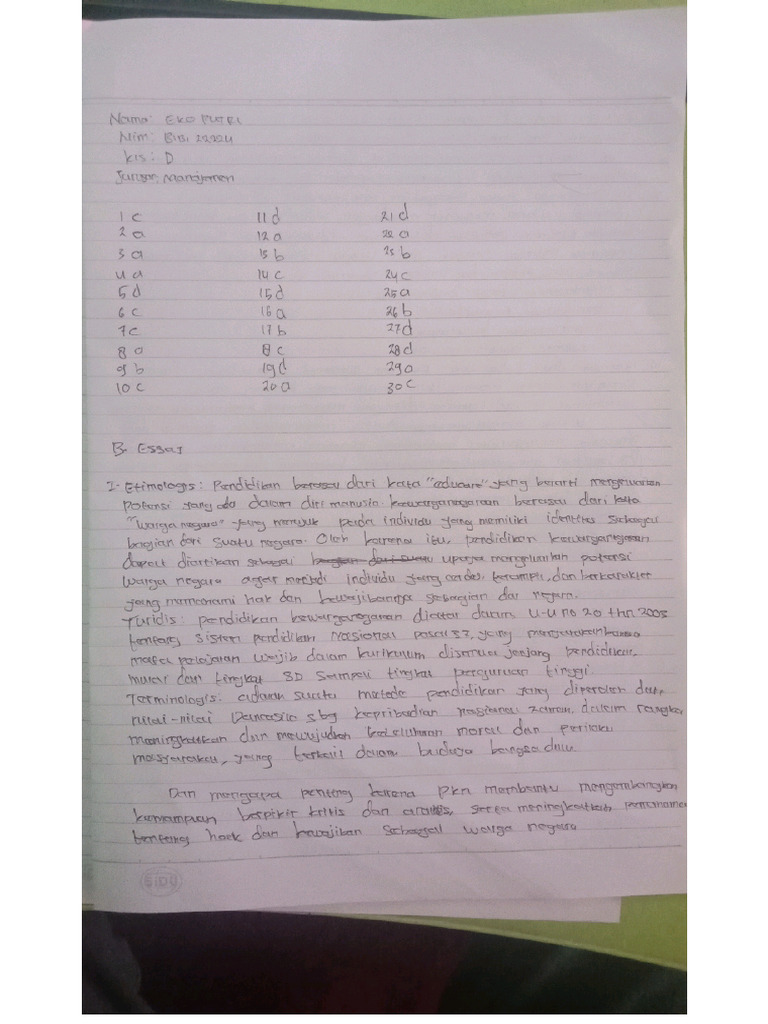 Nama: EKO PUTRI
Nim: B1B1 22224
kls: D
Jurusan: Manajemen
1 c 11 d 21 d
2 a 12 a 22 a
3 a 13 b 23 b
4 a 14 c 24 c
5 d 15 d 25 a
6 c 16 a 26 b
7 c 17 b 27 d
8 a 8 c 28 d
9 b 19 d 29 a
10 c 20 a 30 c
B. Essai
1. Etimologis: Pendidikan berasal dari kata "educare" yang berarti mengeluarkan
potensi yang ada dalam diri manusia. kewarganegaraan berasal dari kata
"warga negara" yang merujuk pada individu yang memiliki identitas sebagai
bagian dari suatu negara. Oleh karena itu, pendidikan kewarganegaraan
dapat diartikan sebagai bagian dari suatu upaya mengeluarkan potensi
warga negara agar menjadi individu yang cerdas, terampil, dan berkarakter
yang memahami hak dan kewajibannya sebagian dar negara.
Yuridis: pendidikan kewarganegaraan diatur dalam U-U no 20 thn 2003
tentang sistem pendidikan Nasional pasal 37, yang menyatakan bahwa
mata pelajaran wajib dalam kurikulum disemua jenjang pendidikan,
mulai dari tingkat SD sampai tingkat perguruan tinggi.
Terminologis: adalah suatu metode pendidikan yang diperoleh dari
nilai-nilai Pancasila sbg kepribadian nasional zaman, dalam rangka
meningkatkan dan mewujudkan keluhuran moral dan perilaku
masyarakat, yang terkait dalam budaya bangsa dulu.
Dan mengapa penting karena Pkn membantu mengembangkan
kemampuan berpikir kritis dan analisis, serta meningkatkan pemahaman
tentang hak dan kewajiban sebagai warga negara
SIDU